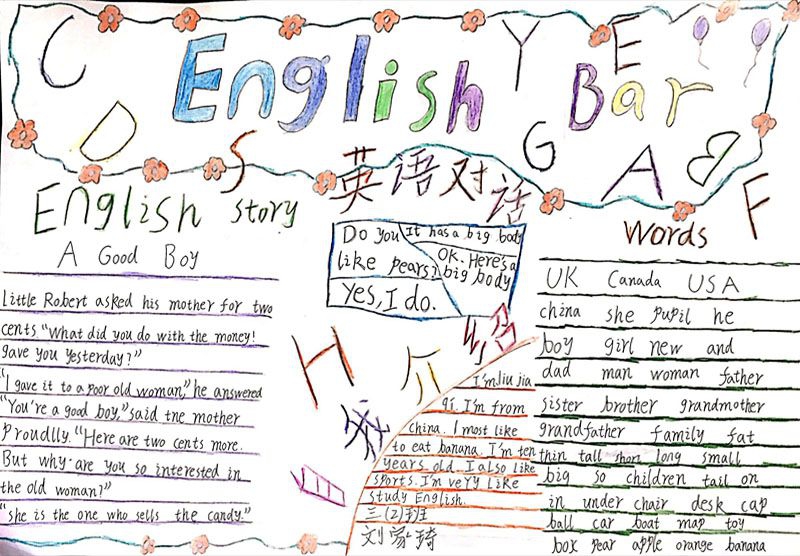 C
English
Y
E
Bar
D
S
G
A
B
F
English story
A Good Boy
little Robert asked his mother for two
cents "What did you do with the money!
gave you yesterday?"
"I gave it to a poor old woman," he answered
"You're a good boy," said the mother
Proudlly. "Here are two cents more.
But why are you so interested in
the old woman?"
"she is the one who sells the candy."
英语对话
Do you
like pears?
Yes, I do.
It has a big body
OK. Here's a
big body
H
介绍
I'm liu jia
qi. I'm from
china. I most like
to eat banana. I'm ten
years old. I also like
sports. I'm very like
study English.
三(2)班
刘家琦
Words
UK Canada USA
china she pupil he
boy girl new and
dad man woman father
sister brother grandmother
grandfather family fat
thin tall short long small
big so children tail on
in under chair desk cap
ball car boat map toy
box pear apple orange banana